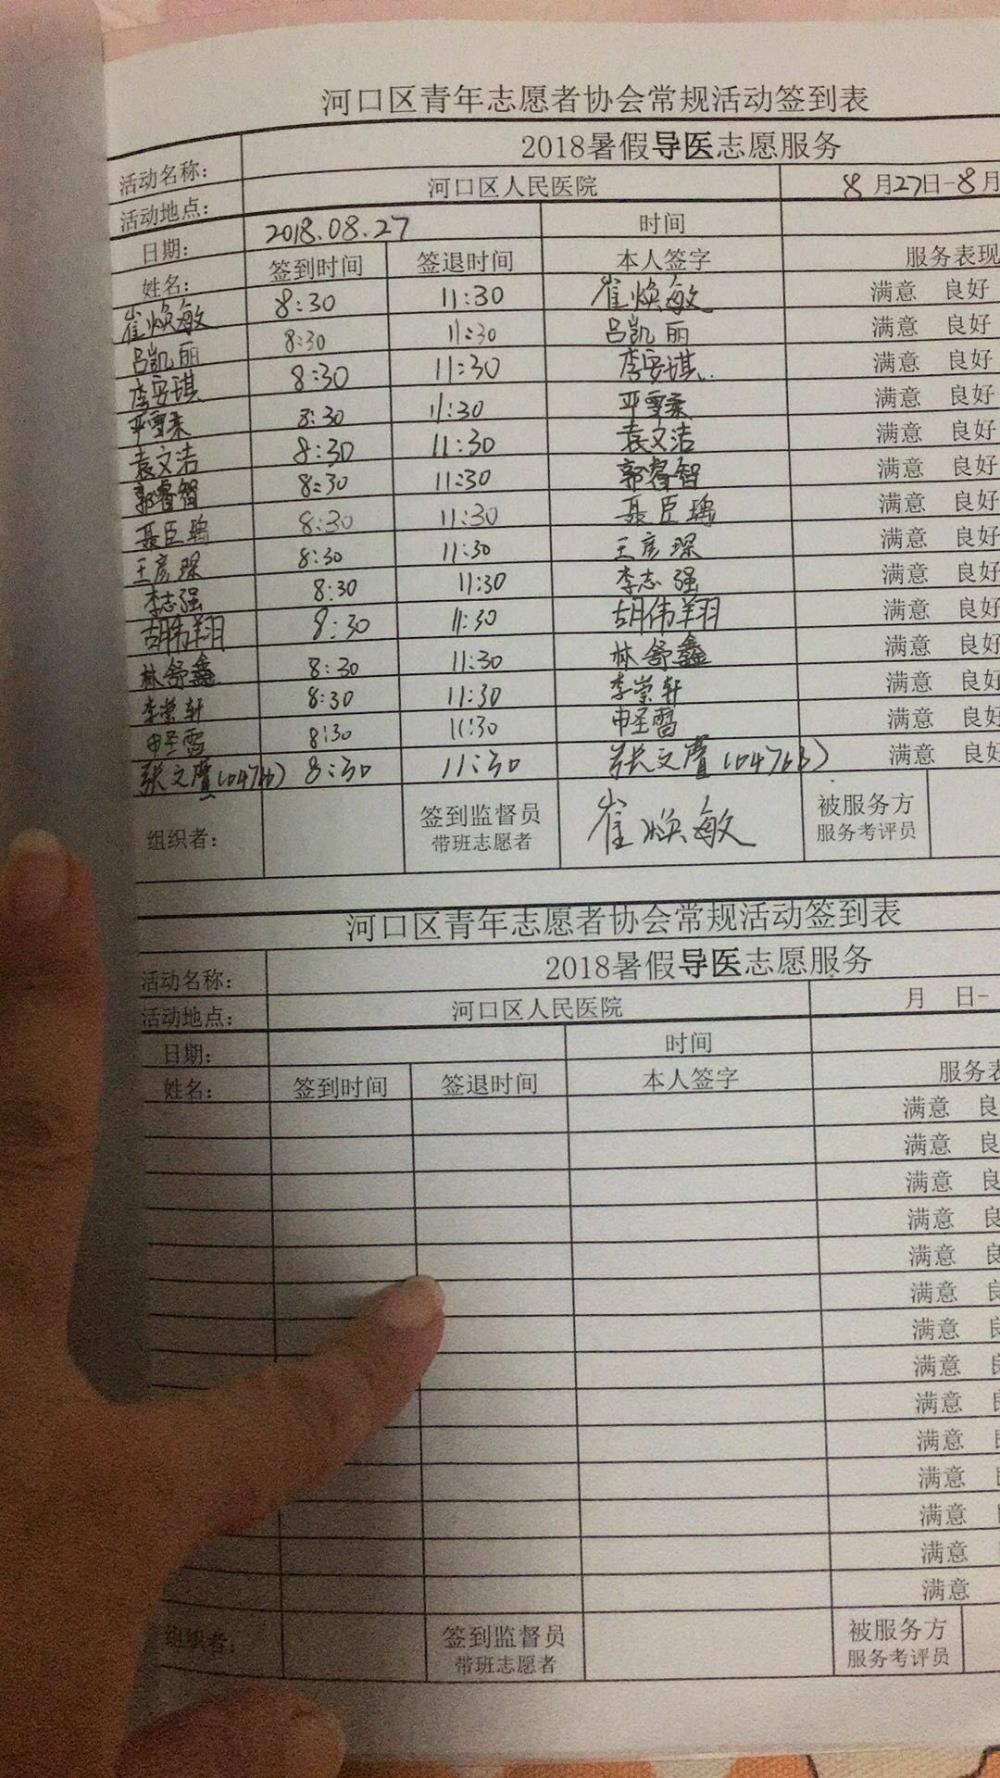 河口区青年志愿者协会常规活动签到表
活动名称： 2018暑假导医志愿服务
活动地点： 河口区人民医院 8月27日-8月
日期： 2018.08.27 时间
姓名： 签到时间 签退时间 本人签字 服务表现
崔焕敏 8:30 11:30 崔焕敏 满意 良好
吕凯丽 8:30 11:30 吕凯丽 满意 良好
李安琪 8:30 11:30 李安琪 满意 良好
8:30 11:30 满意 良好
袁文洁 8:30 11:30 袁文洁 满意 良好
郭睿智 8:30 11:30 郭睿智 满意 良好
聂臣瑞 8:30 11:30 聂臣瑞 满意 良好
王彦琛 8:30 11:30 王彦琛 满意 良好
李志强 8:30 11:30 李志强 满意 良好
胡伟翔 8:30 11:30 胡伟翔 满意 良好
林舒鑫 8:30 11:30 林舒鑫 满意 良好
李崇轩 8:30 11:30 李崇轩 满意 良好
8:30 11:30 满意 良好
张文 8:30 11:30 张文 满意 良好
组织者： 签到监督员 崔焕敏 被服务方
带班志愿者 服务考评员
河口区青年志愿者协会常规活动签到表
活动名称： 2018暑假导医志愿服务
活动地点： 河口区人民医院 月 日-
日期： 时间
姓名： 签到时间 签退时间 本人签字 服务表
满意 良
满意 良
满意 良
满意 良
满意 良
满意 良
满意
满意
满意
满意
满意
满意
满意
满意
组织者： 签到监督员 被服务方
带班志愿者 服务考评员